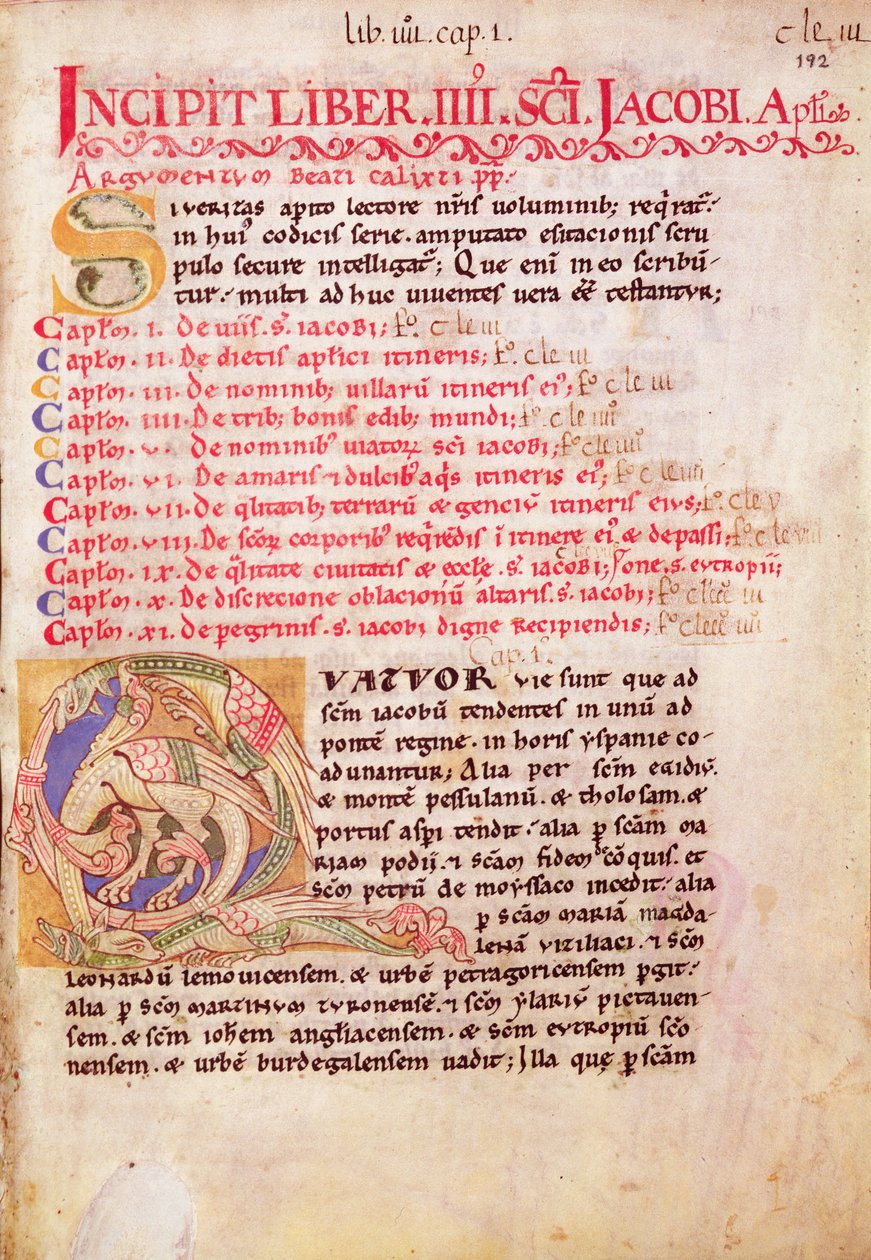 lib. iiii. cap. 1.
c le iii
192
INCIPIT LIBER .IIII. SCI. JACOBI. Aptli.
Argumentum Beati calixti pp.
Si veritas apito lectore nris uoluminib; reqrat.
in hui' codicis serie. amputato esitacionis scru
pulo secure intelligat; Que eni in eo scribū
tur. multi ad huc uiuentes uera eē testantur;
Captlm. I. De uiis. s. iacobi; fo. c le iii
Captlm. II. De dietis aptlici itineris; fo. c le iii
Captlm. III. De nominib; uillarū itineris ei'; fo c le iii
Captlm. IIII. De trib; bonis edib; mundi; fo. c le iiii
Captlm. V. De nominib' uiatoꝝ sci iacobi; fo c le iiii
Captlm. VI. De amaris ⁊ dulcib' aqs itineris ei'; fo c le iiii
Captlm. VII. De qlitatib; terrarū & genciū itineris eius; fo. c le v
Captlm. VIII. De scoꝝ corporib' reqrēdis ī itinere ei' & de passi; fo. c le viii
Captlm. IX. De qlitate ciuitatis & eccle. s. iacobi; sone. s. eutropii;
Captlm. X. De discrecione oblacionū altaris. s. iacobi; fo
Captlm. XI. De peregrinis. s. iacobi digne recipiendis; fo
Cap. 1.
QVATVOR vie sunt que ad
scm iacobū tendentes in unū ad
pontē regine. in horis yspanie co-
adunantur; Alia per scm egidiū.
& montē pessulanū. & tholosam. &
portus aspi tendit. alia p scam ma
riam podij. ⁊ scam fidem de cōquis. et
scm petrū de moyssaco incedit. alia
p scam mariā magda-
lenā viziliaci. ⁊ scm
leonardū lemouicensem. & urbē petragoricensem pgit.
alia p scm martinum turonensē. ⁊ scm ylariū pictauen-
sem. & scm iohem angliacensem. & scm eutropiū scō-
nensem. & urbē burdegalensem uadit; Illa que p scam